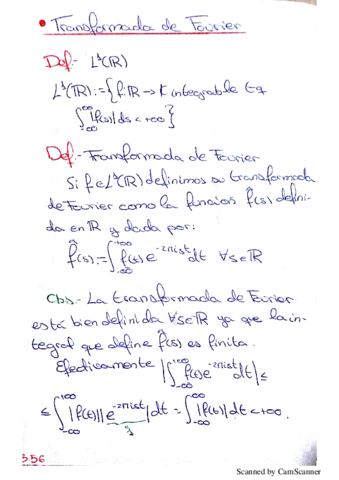 • Transformada de Fourier
Def.- L¹(ℝ)
L¹(ℝ):={f:ℝ→K integrable tq
∫_{-∞}^{+∞}|f(s)|ds<+∞}
Def.- Transformada de Fourier
Si f∈L¹(ℝ) definimos su transformada
de Fourier como la función f̂(s) defini-
da en ℝ y dada por:
f̂(s):=∫_{-∞}^{+∞} f(t)e^{-2πist}dt ∀s∈ℝ
Obs.- La transformada de Fourier
está bien definida ∀s∈ℝ ya que la in-
tegral que define f̂(s) es finita.
Efectivamente |∫_{-∞}^{+∞} f(t)e^{-2πist}dt|≤
≤∫_{-∞}^{+∞}|f(t)||e^{-2πist}|dt=∫_{-∞}^{+∞}|f(t)|dt<+∞.
1
356
Scanned by CamScanner